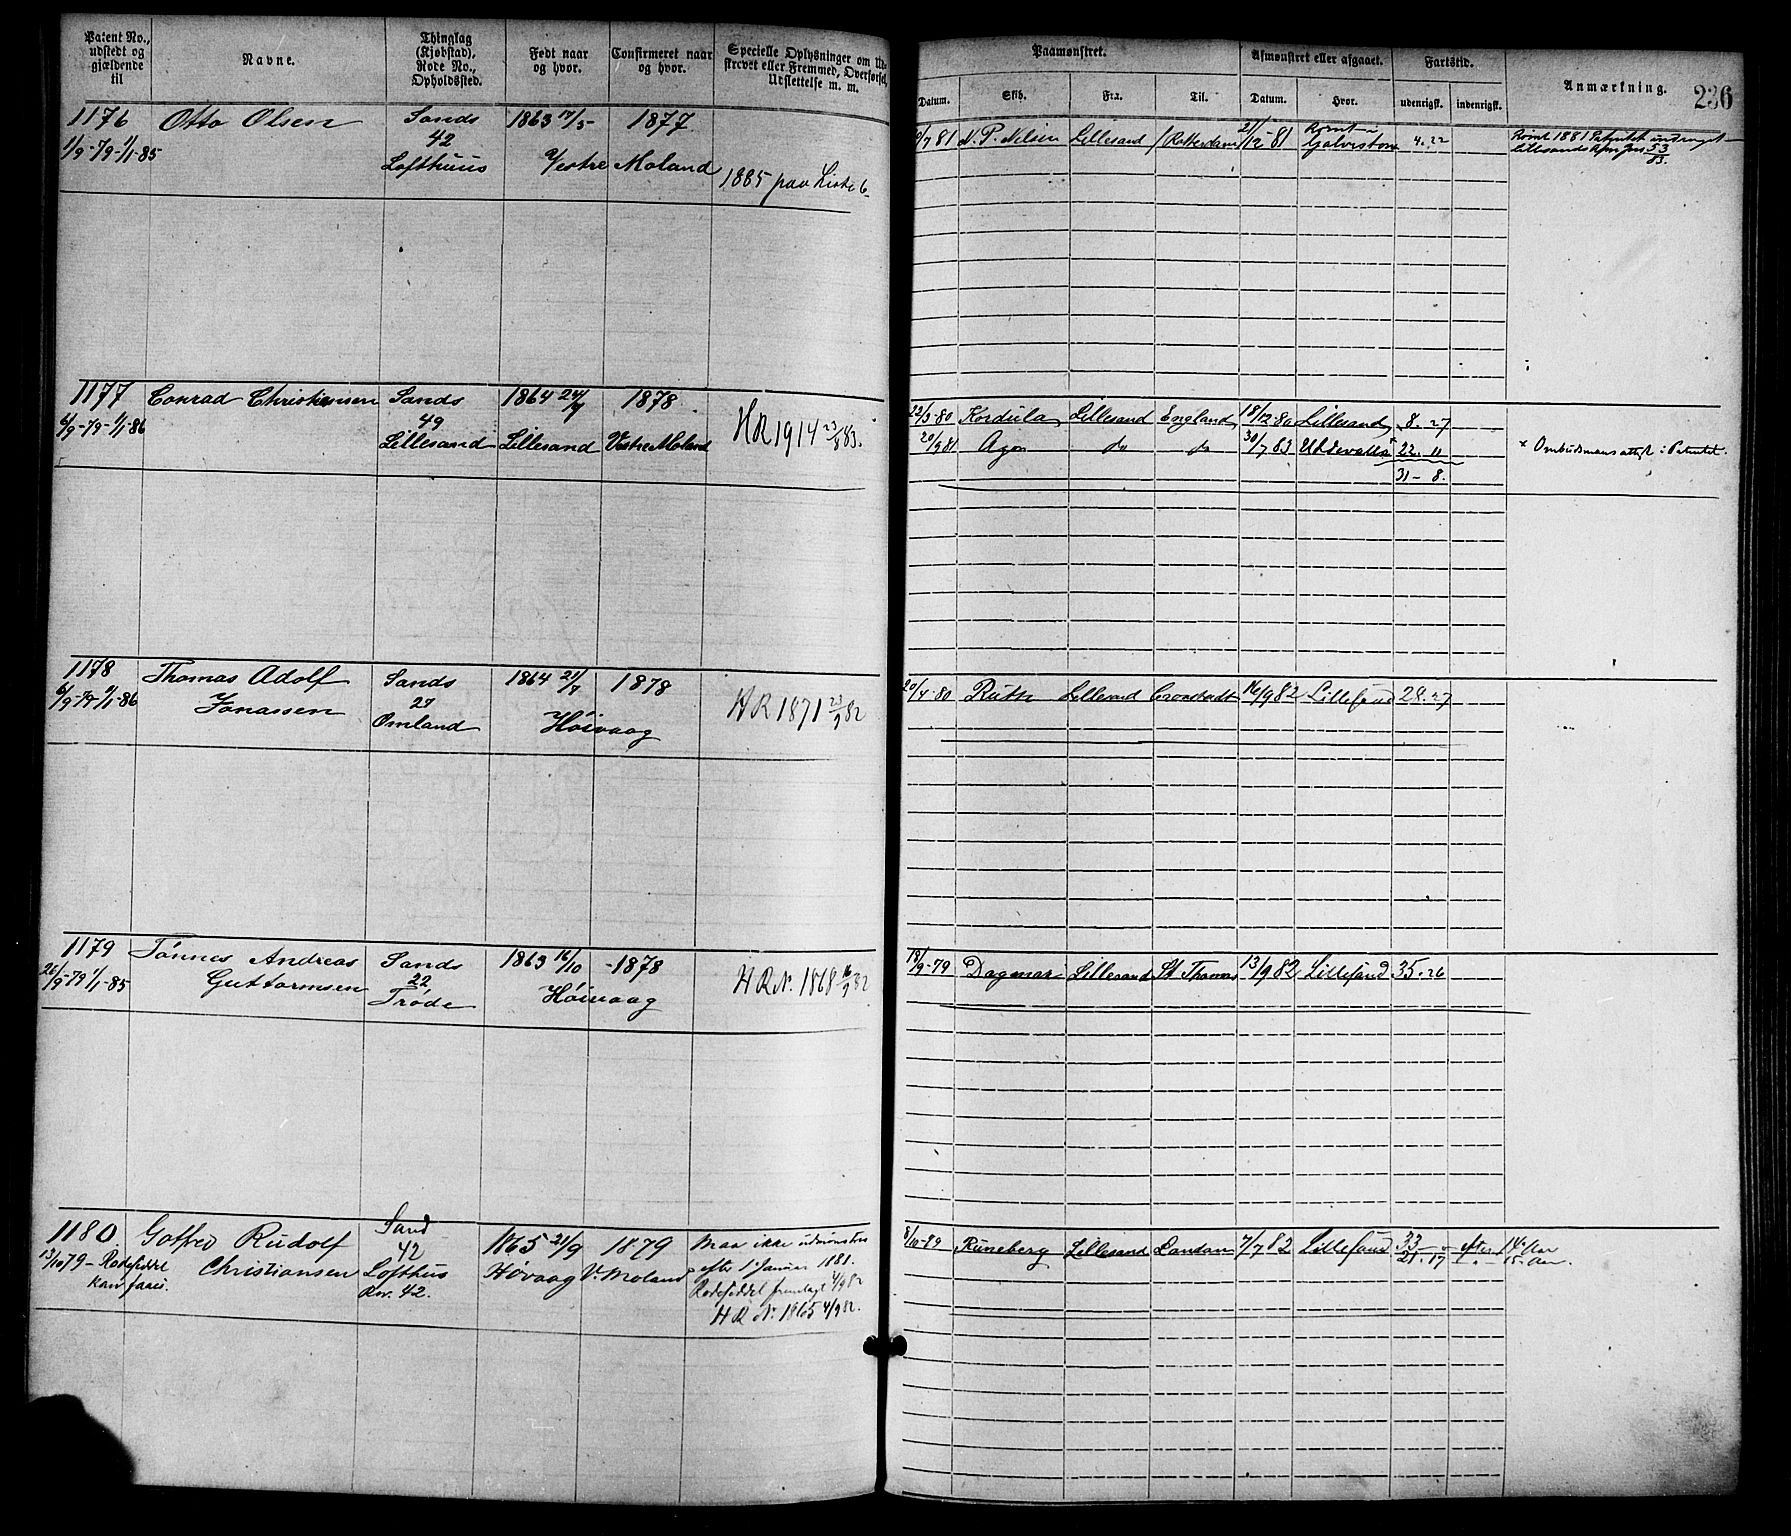 Patent No., udstedt og gjældende til
Navne.
Thinglag (Kjøbstad), Rode No., Opholdssted.
Født naar og hvor.
Confirmeret naar og hvor.
Specielle Oplysninger om Udskrevet eller Fremmed, Overførsel, Udslettelse m. m.
Paamønstret.
Afmønstret eller afgaaet.
Fartstid.
Anmærkning.
236
Datum.
Skib.
Fra.
Til.
Datum.
Hvor.
udenrigsk.
indenrigsk.
1176 Otto Olsen Sands 1863 17/5 1877
1/9-79-1/1-85 42
Lofthuus Vestre Moland 1885 paa Liste 6
/7 81 N. P. Nilsen Lillesand Rotterdam 21/12-81 Rømt i Galveston 4.22
Rømt 1881 Patentet inddraget
Lillesands 53/83
1177 Conrad Christiansen Sands 1864 24/4 1878
6/9-79-1/1-86 49
Lillesand Lillesand Vestre Moland HR 1914 23/8 83.
22/3-80 Kordula Lillesand England 18/12 80 Lillesand 8. 27
20/9 81 Agon do do 30/7 83 Uddevalla x 22. 11
x Ombudsmans attest i Patentet.
31- 8.
1178 Thomas Adolf Sands 1864 21/7 1878
6/9-79 1/1-86 Jonassen 27
Omland Høivaag HR 1871 23/9 82
20/4-80 Ruth Lillesand Cronstadt 16/9 82 Lillesand 28.27
1179 Tønnes Andreas Sands 1863 16/10 -1878
26/9-79 1/1-85 Guttormsen 22
Trøde Høivaag HR N. 1868 16/9 82
18/9-79 Dagmar Lillesand St Thomas 13/9 82 Lillesand 35.26
1180. Gotfred Rudolf Sand 1865 21/9 1879 Maa ikke udmønstres
13/10 79- Rodeseddel Christiansen 42 Høvaag V. Moland efter 1 Januar 1881.
kan faaes. Lofthus Rodeseddel fremlagt 4/9 82
Ro. 42. HR N. 1865 4/9 82.
8/10-89 Runeberg Lillesand London 7/7 82 Lillesand 33 efter 14 Aar
21. 17 " 15 Aar.